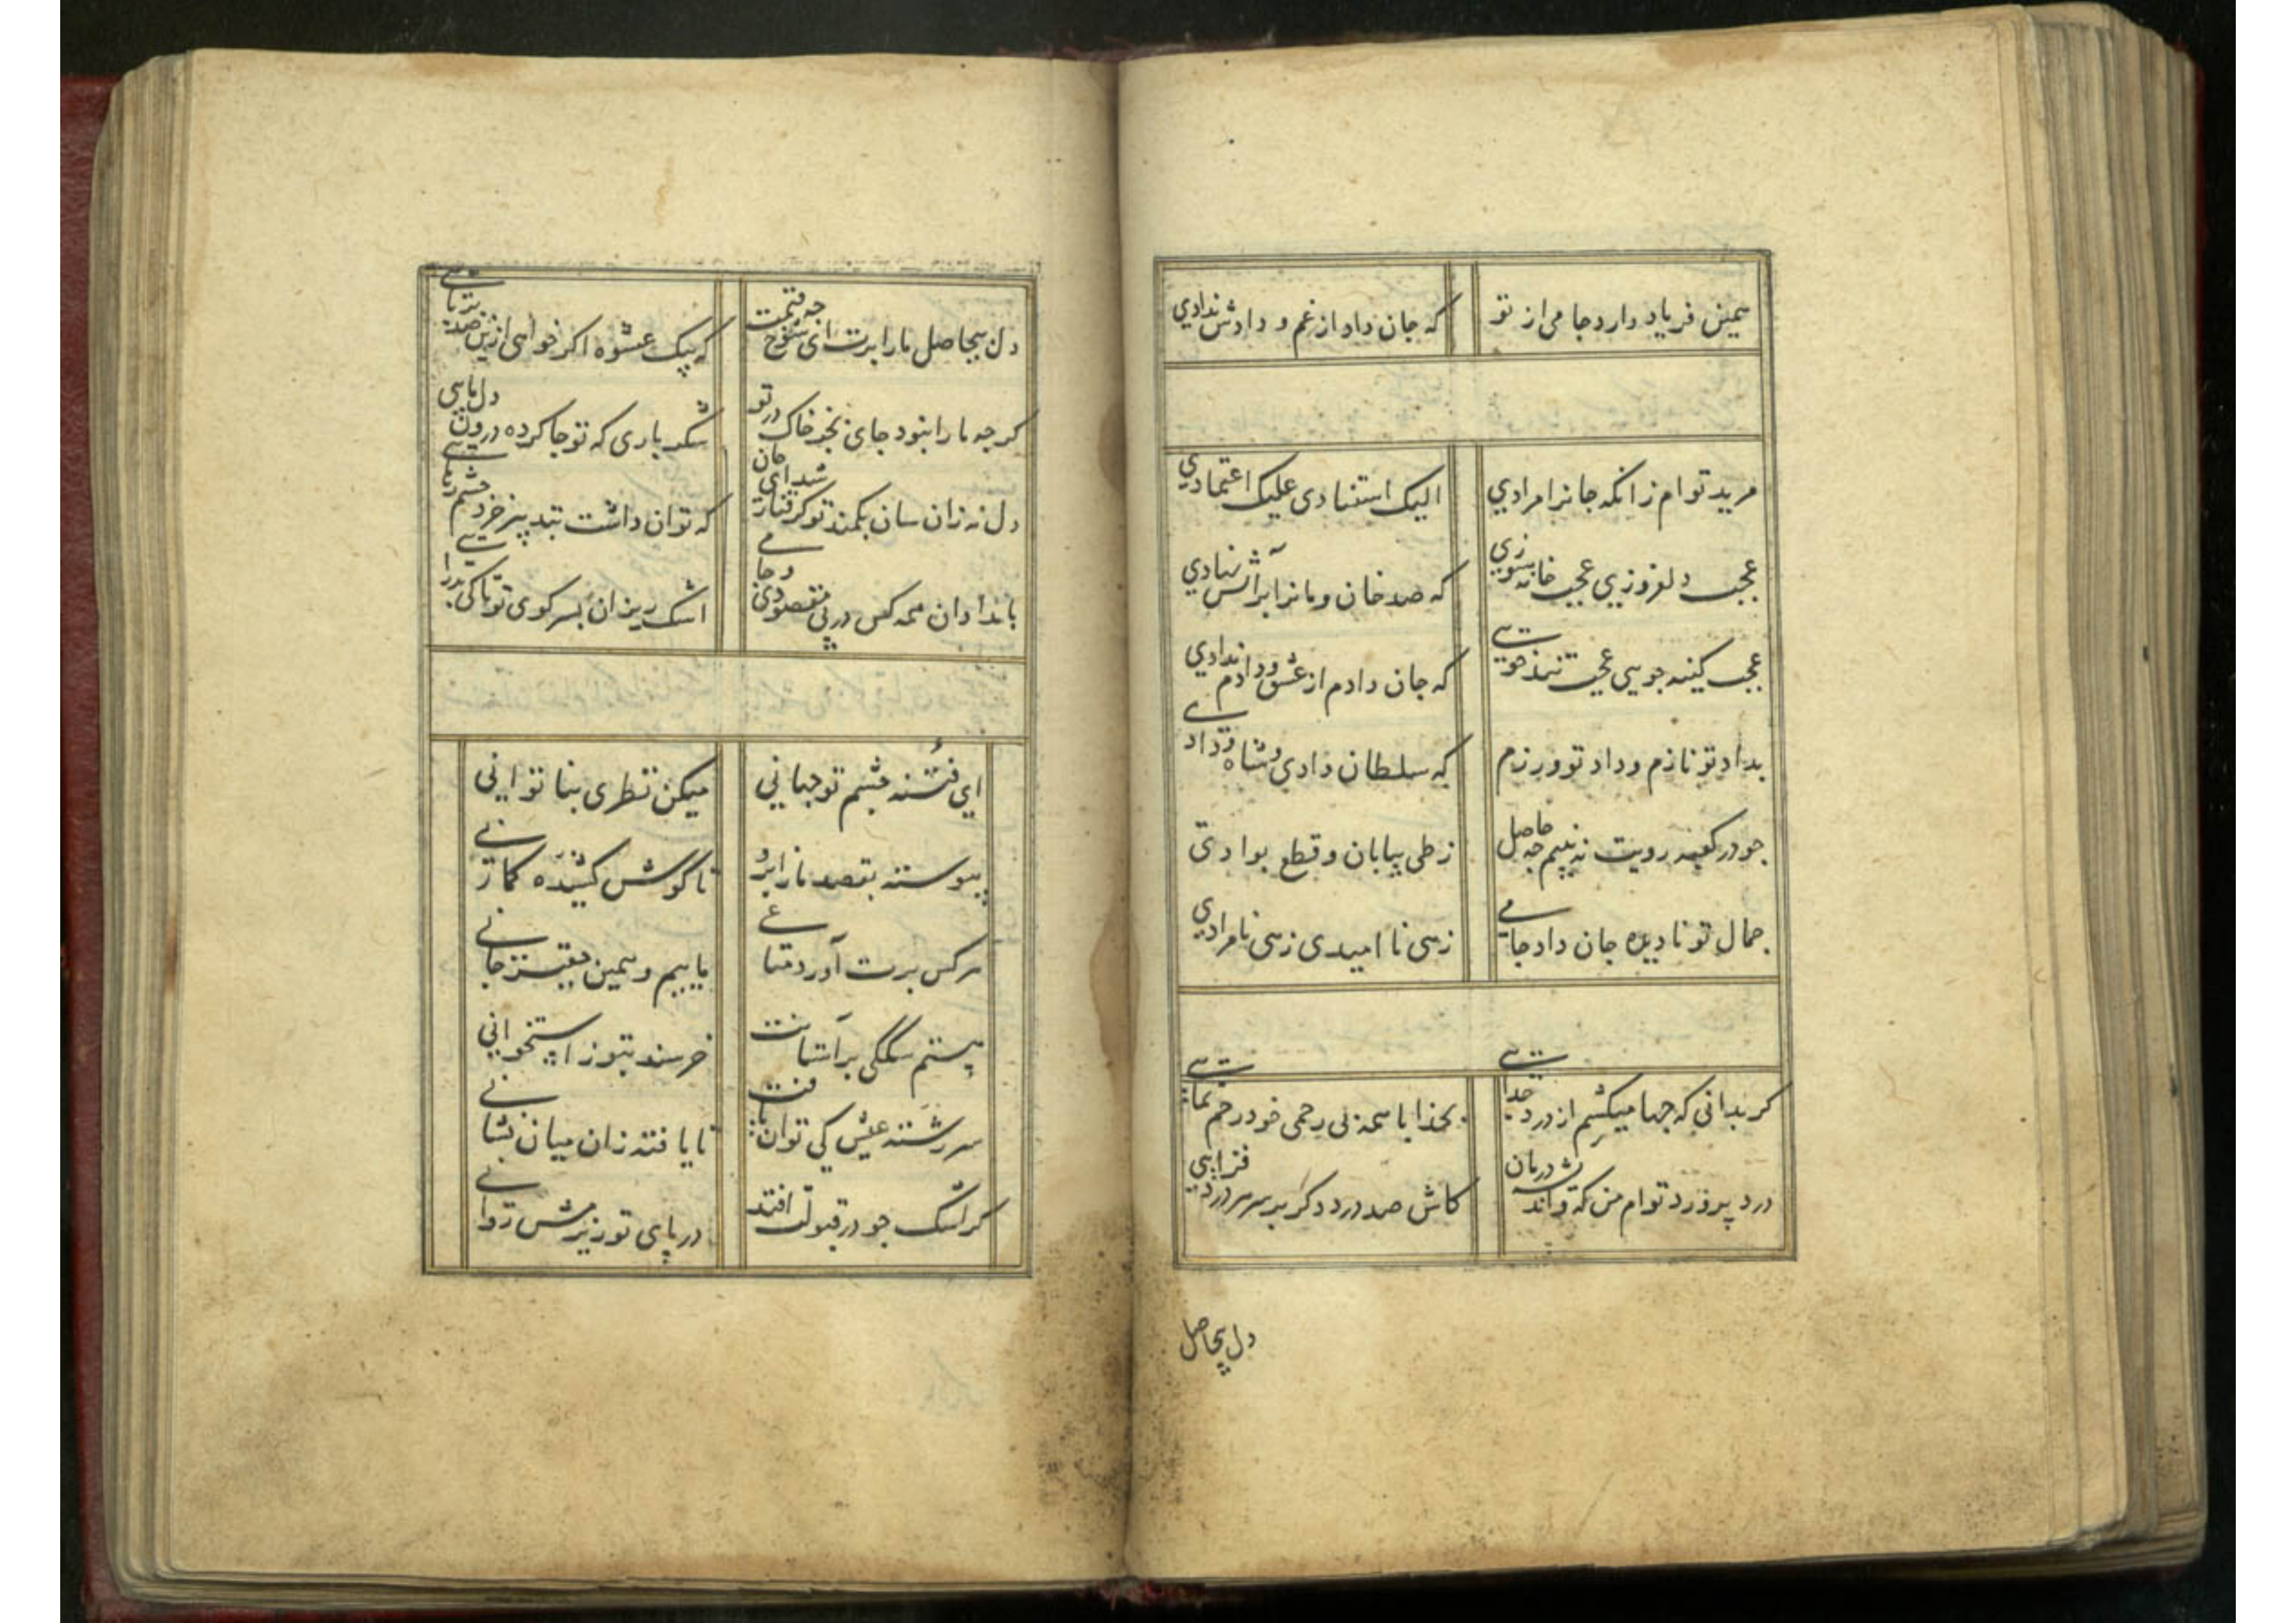 همین فریاد دارد جامی از تو
که جان داد از غم و دادش ندادی
مرید توام زانکه جانرا مرادی
الیک استنادی علیک اعتمادی
عجب دلفروزی عجب خانه سوزی
که صد خان و مانرا بر آتش نهادی
عجب کینه جویی عجب تند خویی
که جان دادم از عشق و دادم ندادی
بداد تو نازم و داد تو ورزم
که سلطان دادی و شاه ودادی
جو در کعبه رویت نه بینم جه حاصل
ز طی بیابان و قطع بوادی
جمال تو نادیده جان داد جامی
زهی نا امیدی زهی نامرادی
کر بدانی که جها میکشم از درد جدایی
بخدا با همه بی رحمی خود رحم نمایی
درد پرورد توام من که و اندیشه درمان
کاش صد درد دکر بر سر درد فزایی
دل بیحاصل
دل بیحاصل ما را برت ای شوخ جه قیمت
که بیک عشوه اکر خواهی ازین صد بربایی
کرجه ما را نبود جای بجز خاک در تو
شکر باری که تو جا کرده درون دل مایی
دل نه زان سان بکمند تو کرفتار شد ای جان
که توان داشت ز چشم رهایی
بامدادان همه کس در پی مقصودی و جامی
اشک ریزان بسر کوی تو تا کی بدر آیی
ای فتنه چشم تو جهانی
میکن نظری بنا توانی
پیوسته بقصد ما ز ابرو
تا کوش کشیده کمانی
هر کس برت آورد متاعی
ماییم و همین فقیر جانی
هستم سککی بر آستانت
خرسند بتو ز استخوانی
سررشته عیش کی توان یافت
نا یافته زان میان نشانی
کر اشک جو در قبولت افتد
در پای تو ریزمش روانی